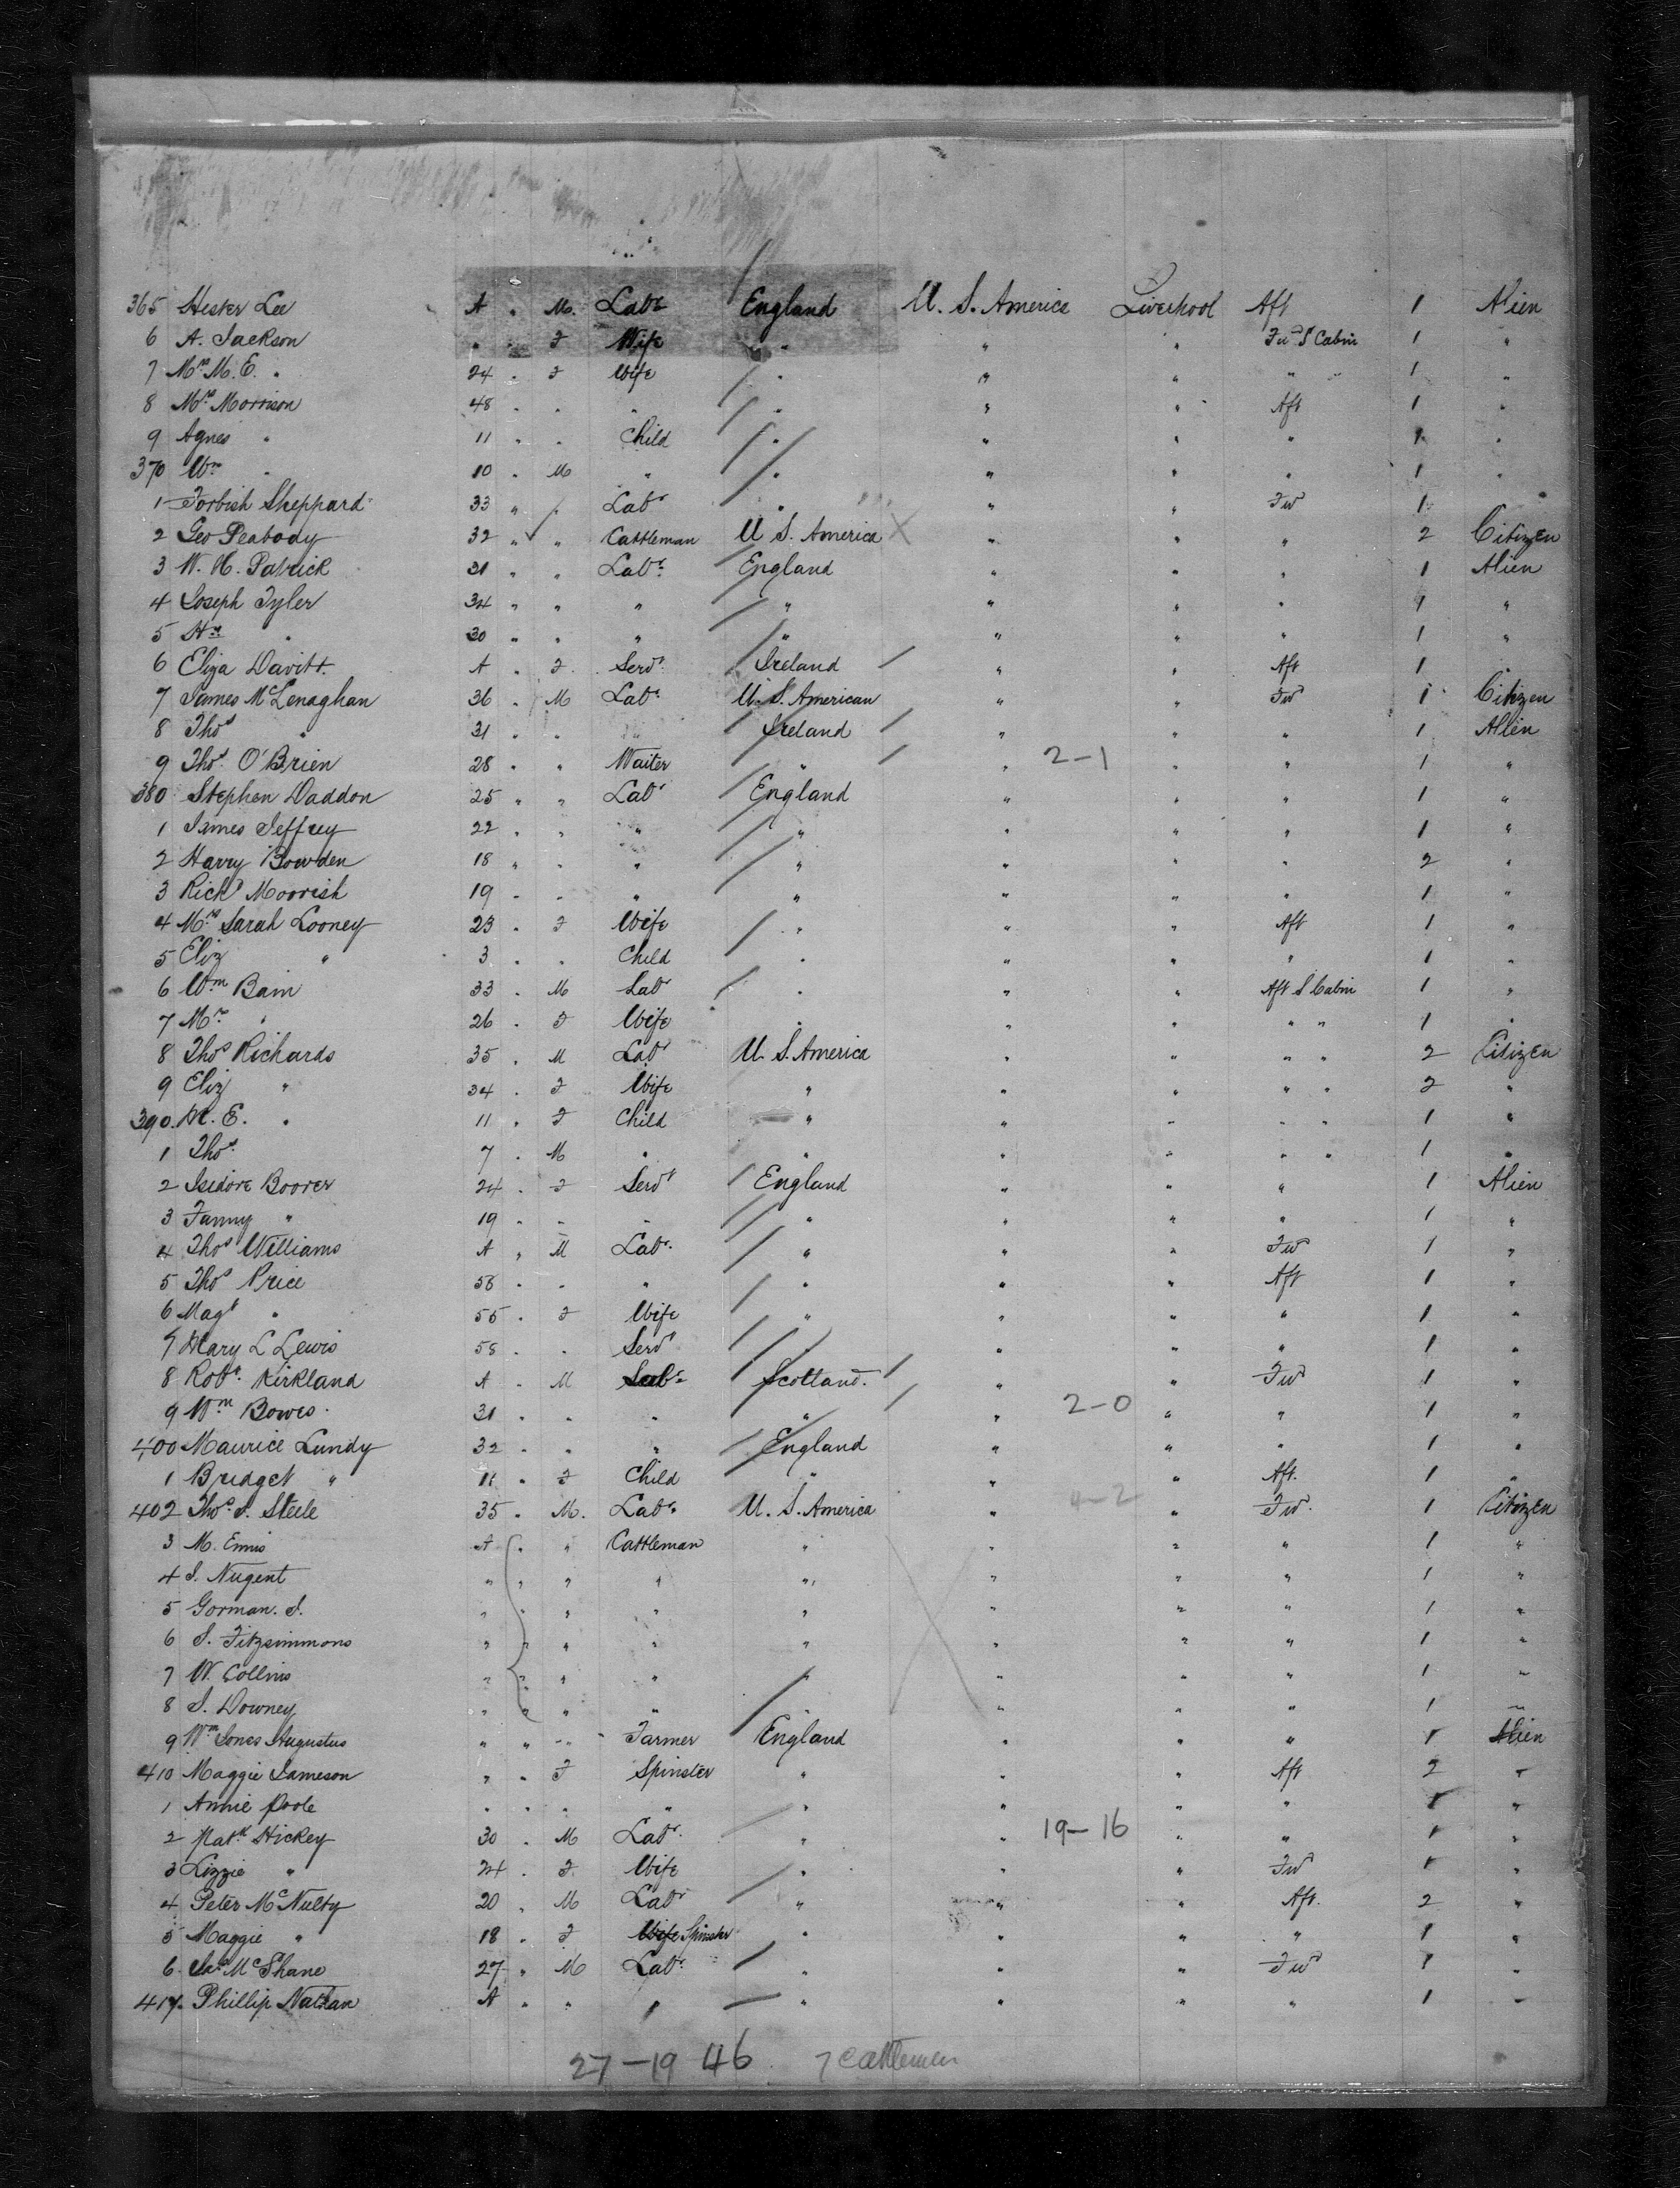 365 Hester Lee A " M. Labr England U. S. America Liverpool Aft 1 Alien
6 A. Jackson " " F Wife " " " Fwd S Cabin 1 "
7 Mrs M. E. " 24 " F Wife " " " " " 1 "
8 Mrs Morrison 48 " " " " " " Aft 1 "
9 Agnes " 11 " " Child " " " " 1 "
370 Wm " 10 " M " " " " " 1 "
1 Forbish Sheppard 33 " " Labr " " " Fwd 1
2 Geo Peabody 32 " " Cattleman U S. America X " " " 2 Citizen
3 W. H. Patrick 31 " " Labr England " " " 1 Alien
4 Joseph Tyler 34 " " " " " " " 1 "
5 Hy " 30 " " " " " " " 1 "
6 Eliza Davitt A " F Servt Ireland " " Aft 1 "
7 James McLenaghan 36 " M Labr U. S. American " " Fwd 1 Citizen
8 Thos " 31 " " " Ireland " " " 1 Alien
9 Thos O'Brien 28 " " Waiter " " 2-1 " " 1 "
380 Stephen Daddon 25 " " Labr England " " " 1 "
1 James Jeffrey 22 " " " " " " " 1 "
2 Harry Bowden 18 " " " " " " " 2 "
3 Richd Moorish 19 " " " " " " " 1 "
4 Mrs Sarah Looney 23 " F Wife " " " Aft 1 "
5 Eliz " 3 " " Child " " " " 1 "
6 Wm Bain 33 " M Labr " " " Aft S Cabin 1 "
7 Mrs " 26 " F Wife " " " " " 1 "
8 Thos Richards 35 " M Labr U. S. America " " " " 2 Citizen
9 Eliz " 34 " F Wife " " " " " 2 "
390 M. E. " 11 " F Child " " " " " 1 "
1 Thos 7 " M " " " " " " 1 "
2 Isidore Boorer 24 " F Servt England " " " 1 Alien
3 Fanny " 19 " " " " " " " 1 "
4 Thos Williams A " M Labr " " " Fwd 1 "
5 Thos Price 56 " " " " " " Aft 1 "
6 Magt " 55 " F Wife " " " " 1 "
7 Mary L Lewis 58 " " Servt " " " 1 "
8 Robt Kirkland A " M Labr Scotland. " " Fwd 1 "
9 Wm Bowes 31 " " " " " 2-0 " " 1 "
400 Maurice Lundy 32 " " " England " " " 1 "
1 Bridget " 11 " F Child " " " Aft. 1 "
402 Thos J. Steele 35 " M. Labr U. S. America " 4-2 " Fwd 1 Citizen
3 M. Ennis A " " Cattleman " " " " 1 "
4 J. Nugent " " " " " " " " 1 "
5 Gorman. J. " " " " " " " " 1 "
6 J. Fitzsimmons " " " " " " " " 1 "
7 W. Collins " " " " " " " " 1 "
8 J. Downey " " " " " " " " 1 "
9 Wm Jones Augustus " " " Farmer England " " " 1 Alien
410 Maggie Jameson " " F Spinster " " " Aft 2 "
1 Annie Poole " " " " " " " " 1 "
2 Patk Hickey 30 " M Labr " " 19-16 " " 1 "
3 Lizzie " 24 " F Wife " " " Fwd 1 "
4 Peter McNulty 20 " M Labr " " " Aft. 2 "
5 Maggie " 18 " F Wife Spinster " " " " 1 "
6 Jas McShane 27 " M Labr " " " Fwd 1 "
417 Phillip Nathan A " " " " " " " 1 "
27-19 46 7 Cattlemen